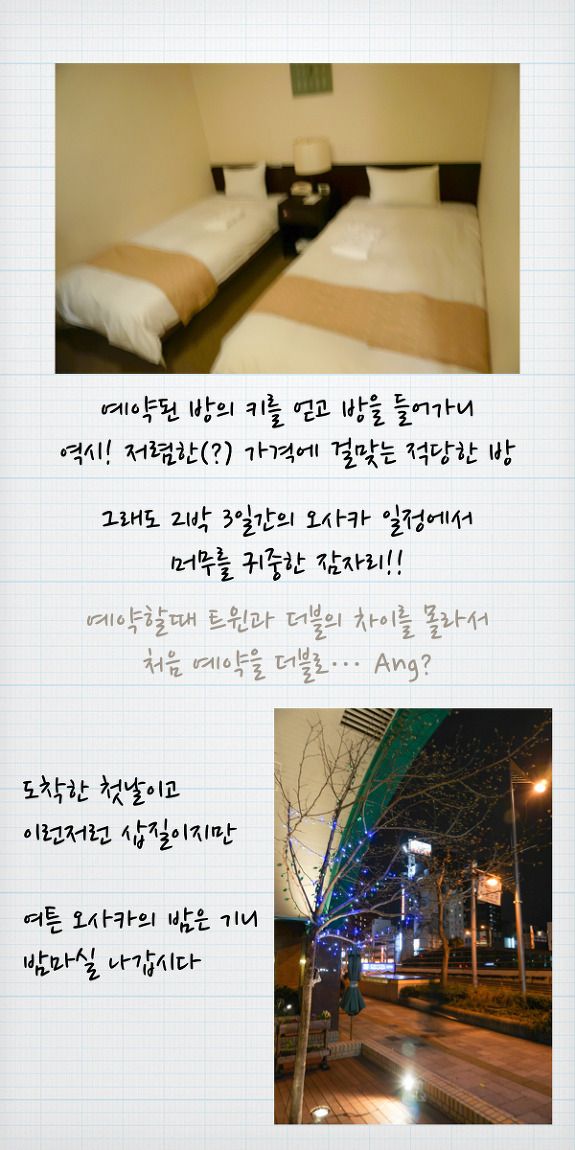 예약된 방의 키를 얻고 방을 들어가니
역시! 저렴한(?) 가격에 걸맞는 적당한 방
그래도 2박 3일간의 오사카 일정에서
머무를 귀중한 잠자리!!
예약할때 트윈과 더블의 차이를 몰라서
처음 예약을 더블로··· Ang?
도착한 첫날이고
이런저런 삽질이지만
여튼 오사카의 밤은 기니
밤마실 나갑시다